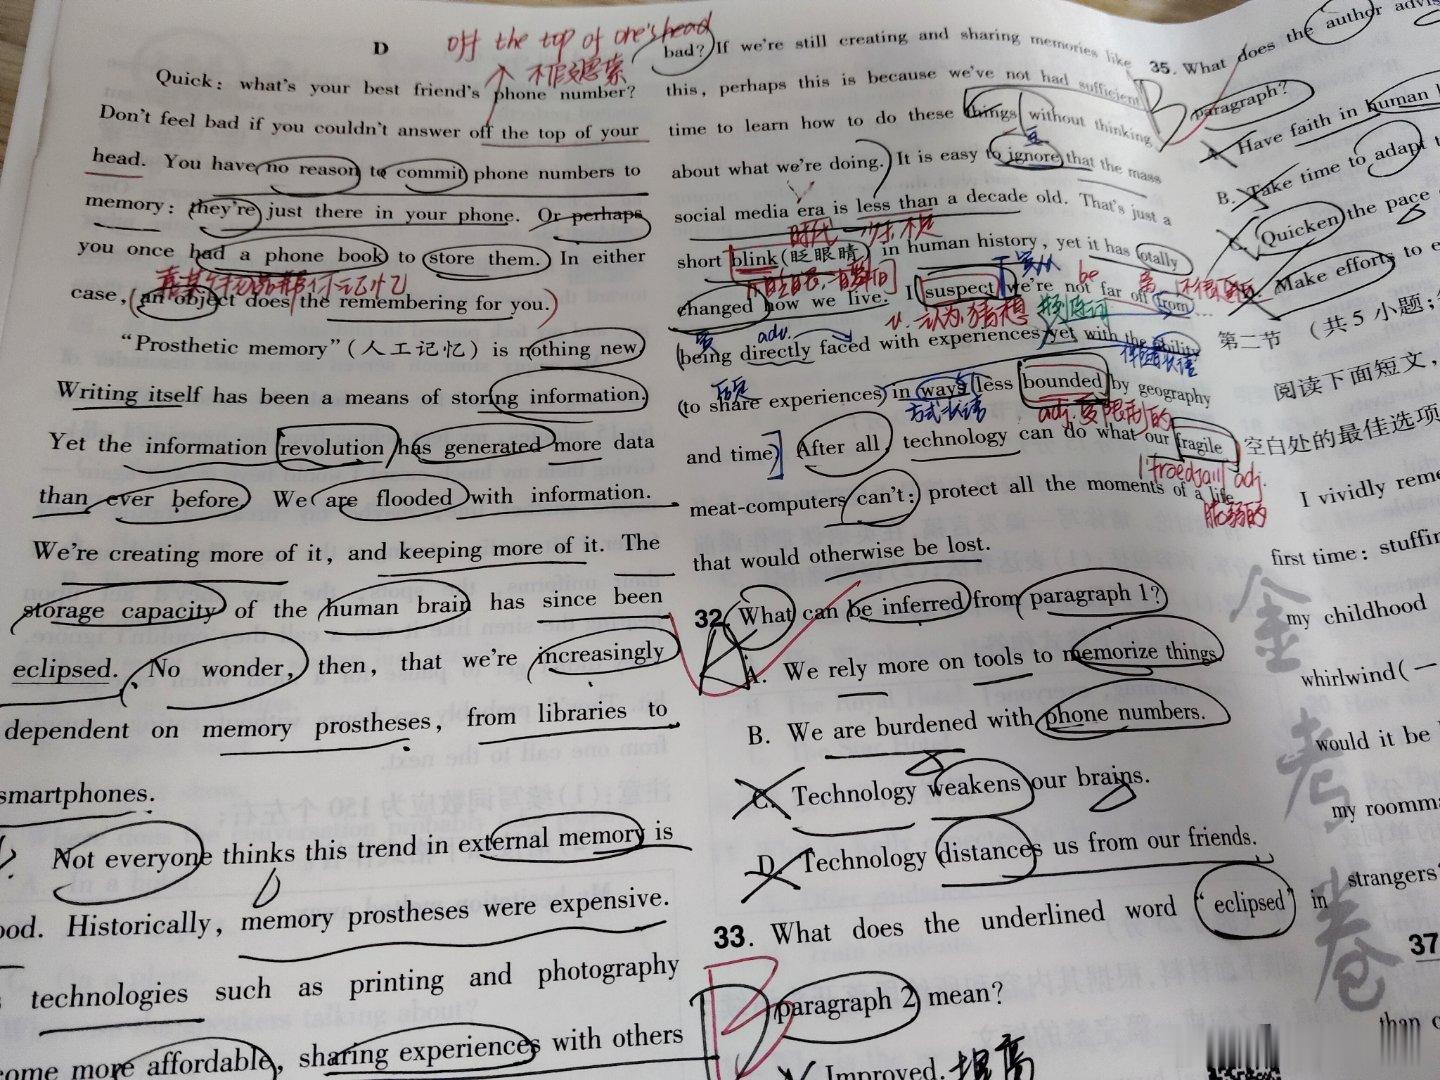 D
off the top of one's head
不假思索
Quick: what's your best friend's phone number?
Don't feel bad if you couldn't answer off the top of your
head. You have no reason to commit phone numbers to
memory: they're just there in your phone. Or perhaps
you once had a phone book to store them. In either
case, an object does the remembering for you.
"Prosthetic memory"(人工记忆) is nothing new
Writing itself has been a means of storing information.
Yet the information revolution has generated more data
than ever before We are flooded with information.
We're creating more of it, and keeping more of it. The
storage capacity of the human brain has since been
eclipsed. No wonder, then, that we're increasingly
dependent on memory prostheses, from libraries to
smartphones.
Not everyone thinks this trend in external memory is
ood. Historically, memory prostheses were expensive.
technologies such as printing and photography
come more affordable, sharing experiences with others
bad? If we're still creating and sharing memories like
this, perhaps this is because we've not had sufficient
time to learn how to do these things without thinking
about what we're doing. It is easy to ignore that the mass
social media era is less than a decade old. That's just a
时代 少于,不足
short blink(眨眼睛) in human history, yet it has totally
changed how we live. I suspect we're not far off from
v. 认为,猜想
being directly faced with experiences yet with the ability
adv.
to share experiences in ways less bounded by geography
方式状语
adj. 受限制的
and time After all, technology can do what our fragile
adj.
脆弱的
meat-computers can't: protect all the moments of a life
that would otherwise be lost.
32. What can be inferred from paragraph 1?
A
A. We rely more on tools to memorize things.
B. We are burdened with phone numbers.
C. Technology weakens our brains.
D. Technology distances us from our friends.
33. What does the underlined word "eclipsed" in
paragraph 2 mean?
B
Improved. 提高
35. What does the author advis
paragraph?
B
A. Have faith in human
B. Take time to adapt t
C. Quicken the pace
D. Make efforts to e
第二节 (共5小题;
阅读下面短文,
空白处的最佳选项
I vividly reme
first time: stuffin
my childhood
whirlwind(一
would it be
my roomma
strangers
37
than
金考卷